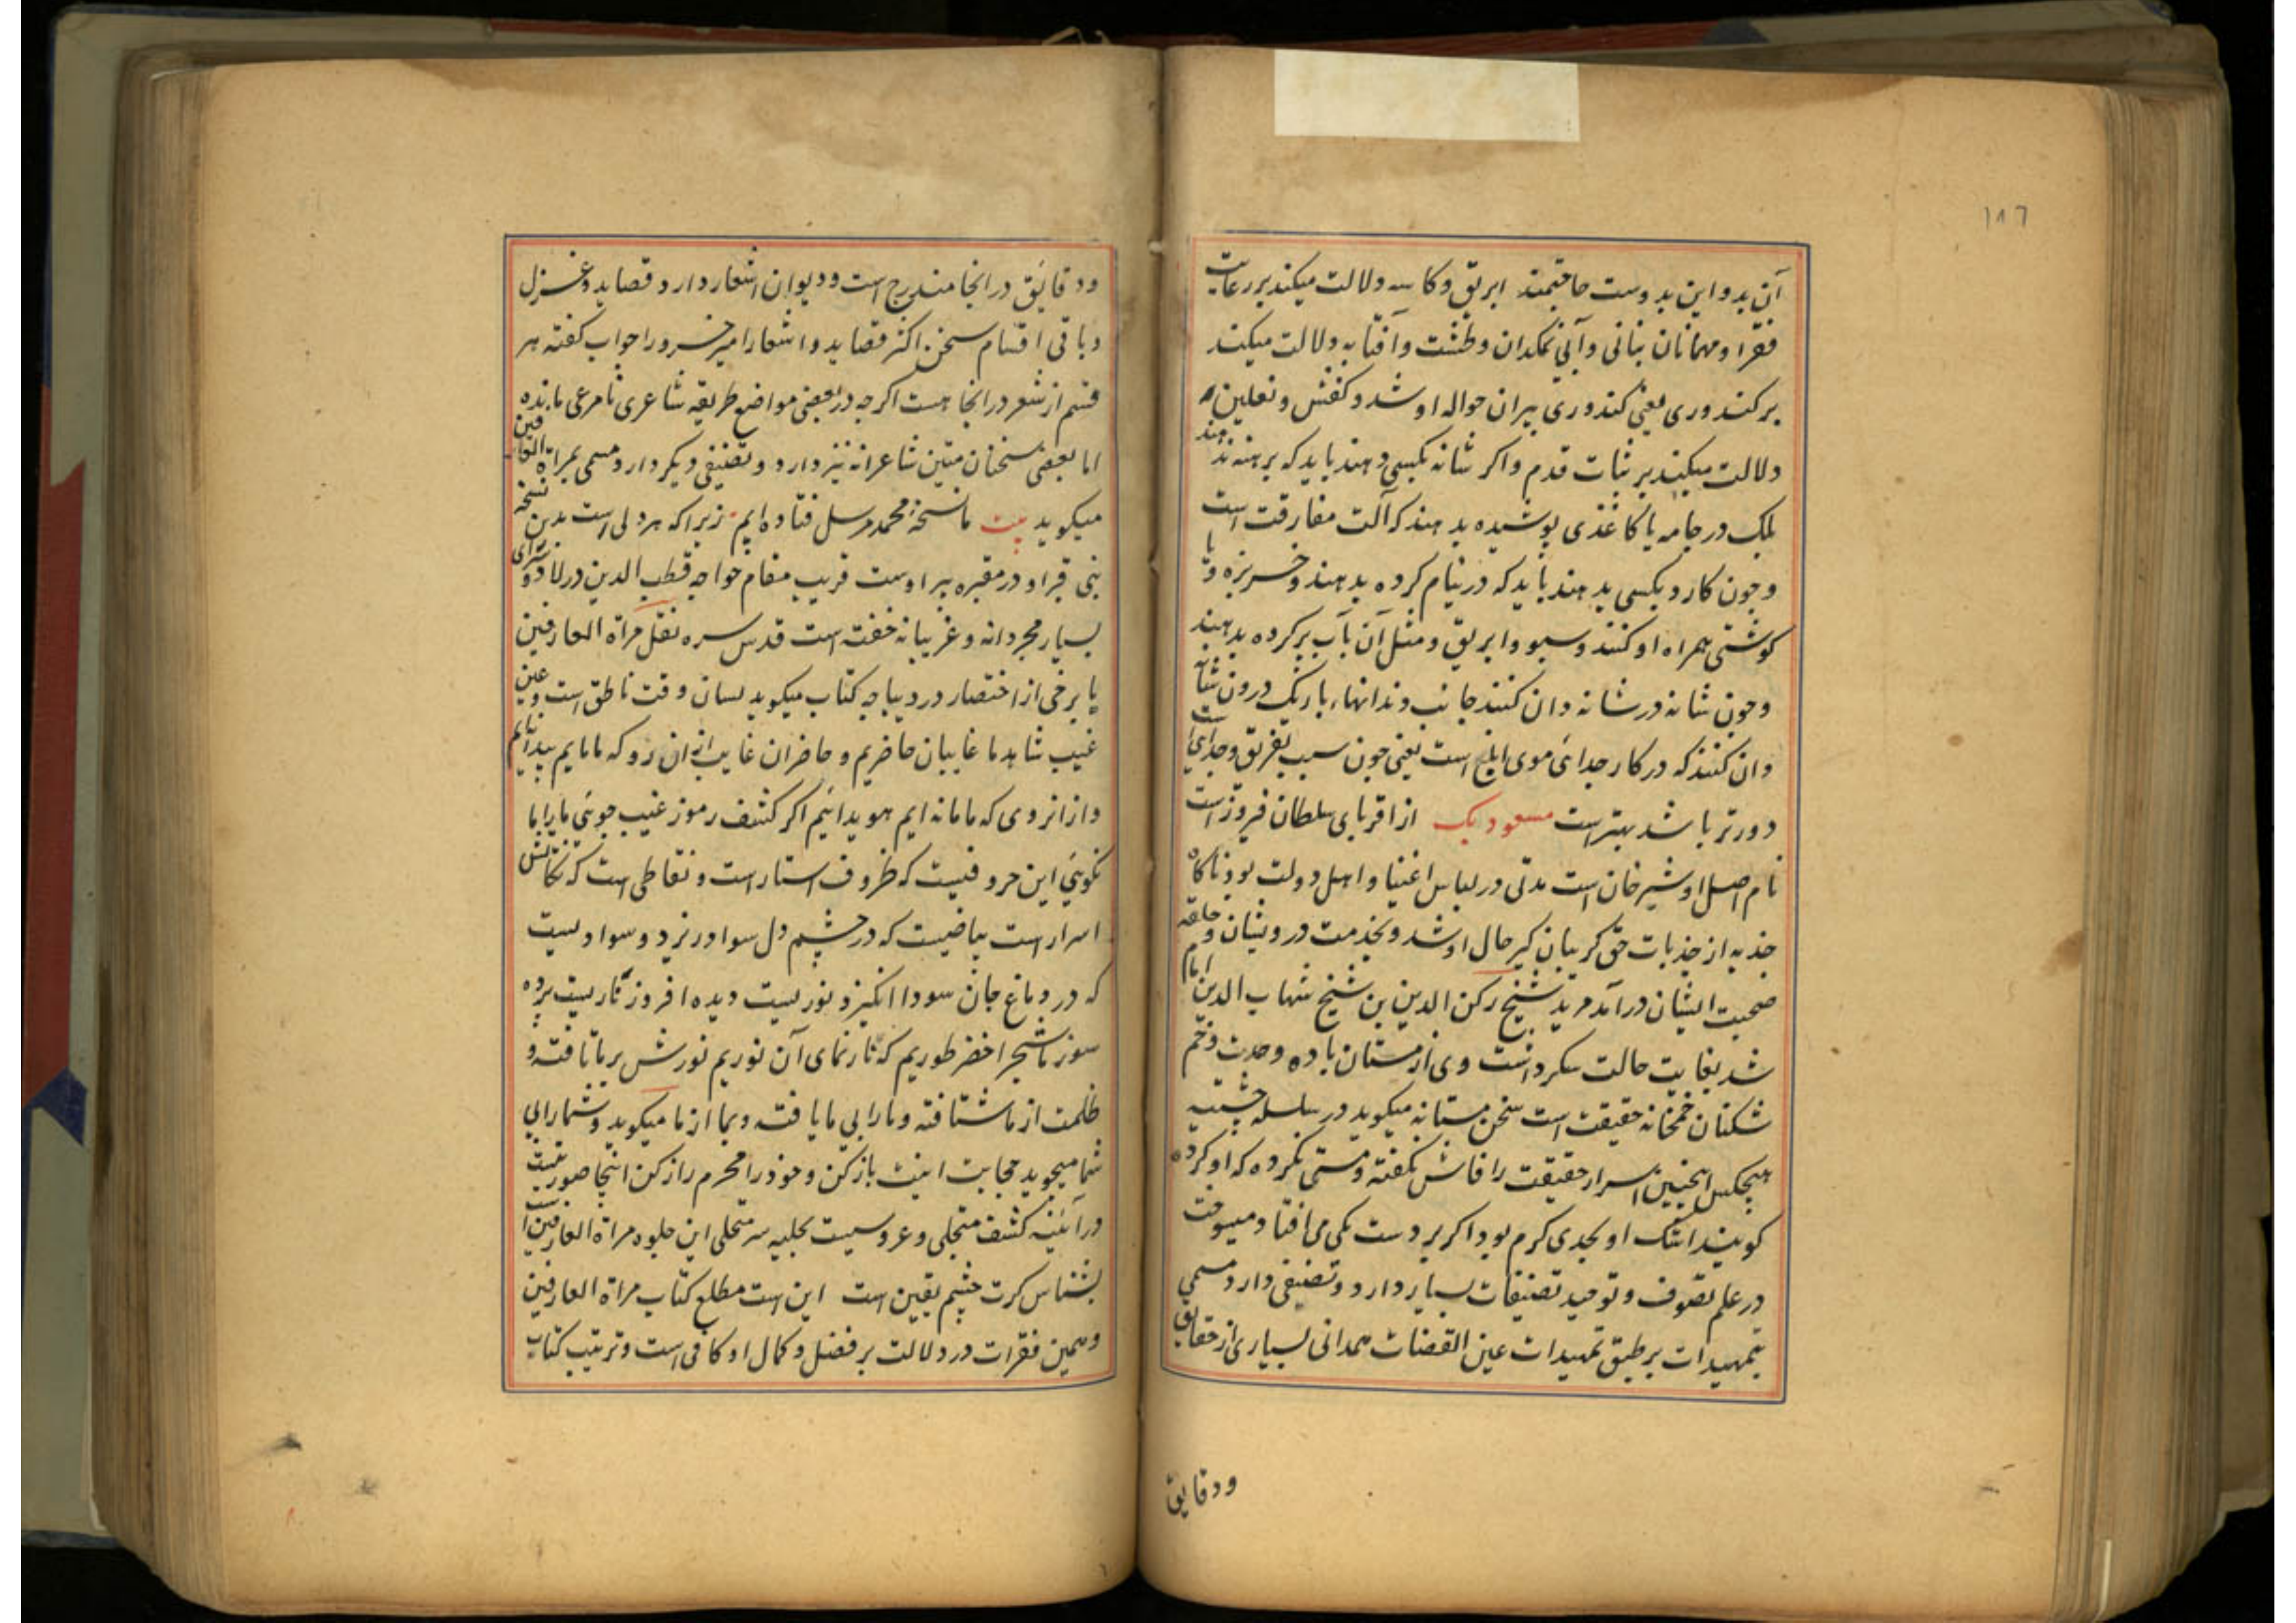 ۱۸۶
آن بد و این بدوست حاجتمند ابریق و کاسه دلالت میکند بر رعایت
فقرا و مهمانان بنانی و آبی نمکدان و طشت و آفتابه دلالت میکند
بر کندوری یعنی کندوری پیران حواله او شد و کفش و نعلین
دلالت میکند بر ثبات قدم و اکر شانه بکسی دهند باید که برهنه ندهند
بلک در جامه یا کاغذی پوشیده بدهند که آلت مفارقت است
و چون کارد بکسی بدهند باید که در نیام کرده بدهند و خربزه و یا
کوشتی همراه او کنند و سبو و ابریق و مثل آن بآب پر کرده بدهند
و چون شانه در شانه دان کنند جانب دندانهاء باریک درون شانه
دان کنند که در کار جدائی موی ابلغ است یعنی چون سبب تفریق و جدایی است
دورتر باشد بهتر است مسعود بک از اقربای سلطان فیروز است
نام اصل او شیر خان است مدتی در لباس اغنیا و اهل دولت بود ناکاه
جذبه از جذبات حق کریبان کیر حال او شد و بخدمت درویشان و حلقه
صحبت ایشان درآمد مرید شیخ رکن الدین بن شیخ شهاب الدین امام
شد بغایت حالت سکر داشت وی از مستان باده وحدت و خم
شکنان خمخانه حقیقت است سخن مستانه میکوید در سلسله چشتیه
هیچکس اینچنین اسرار حقیقت را فاش نکفته و مستی نکرده که او کرده
کویند اشک او بحدی کرم بود اکر بر دست کی می افتاد میسوخت
در علم تصوف و توحید تصنیفات بسیار دارد و تصنیفی دارد مسمی
بتمهیدات بر طبق تمهیدات عین القضات همدانی بسیاری از حقایق
ودقایق
ودقایق در انجا مندرج است و دیوان اشعار دارد قصاید و غزل
و باقی اقسام سخن اکثر قصاید و اشعار امیر خسرو را جواب کفته هر
قسم از شعر در انجا هست اکرچه در بعضی مواضع طریقه شاعری نامرعی مانده
اما بعضی سخنان متین شاعرانه نیز دارد و تصنیفی دیکر دارد مسمی بمراة العارفین
میکوید بیت ما نسخهٔ محمد مرسل فتاده ایم زیراکه هر دلی است بدین نسخه
نبی قبر او در مقبره پیر اوست قریب مقام خواجه قطب الدین در لادوسرای
بسیار مجردانه و غریبانه خفته است قدس سره نقل مراة العارفین
با برخی از اختصار در دیباچه کتاب میکوید لسان وقت ناطق است و عین
غیب شاهد ما غایبان حاضریم و حاضران غایب ازان رو که مامایم پیدائیم
و ازانروی که ما مانه ایم هویدانئیم اکر کشف رموز غیب جوئی ما را با ما
نکوئی این حروفیست که ظروف استار است و نقاطی است که نکاتش
اسرار است بیاضیست که در چشم دل سواد ورزد و سوادیست
که در دماغ جان سودا انکیزد نوریست دیده افروز ناریست پرده
سوز ما شجر اخضر طوریم که نار نمای آن نوریم نورش بر ما تافته و
ظلمت از ما شتافته و ما را بی ما یافته و بما از ما میکوید و شما را بی
شما میجوید حجابت اینت باز کن و خود را محرم راز کن اینجا صوریست
در آئینه کشف متجلی و عروسیست بحلیه سر متحلی این جلوه مراة العارفین است
بشناس کرت چشم یقین است این است مطلع کتاب مراة العارفین
و همین فقرات در دلالت بر فضل و کمال او کافی است و ترتیب کتاب